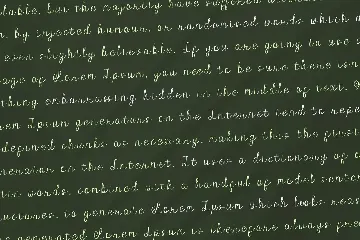 lable, but the majority have suffered
n, by injected humour, or randomised words which
even slightly believable. If you are going to use
age of Lorem Ipsum, you need to be sure there isn
thing embarrassing hidden in the middle of text.
rem Ipsum generators on the Internet tend to repe
defined chunks as necessary, making this the first
nerator on the Internet. It uses a dictionary of
tin words, combined with a handful of model senten
uctures, to generate Lorem Ipsum which looks reas
generated Lorem Ipsum is therefore always